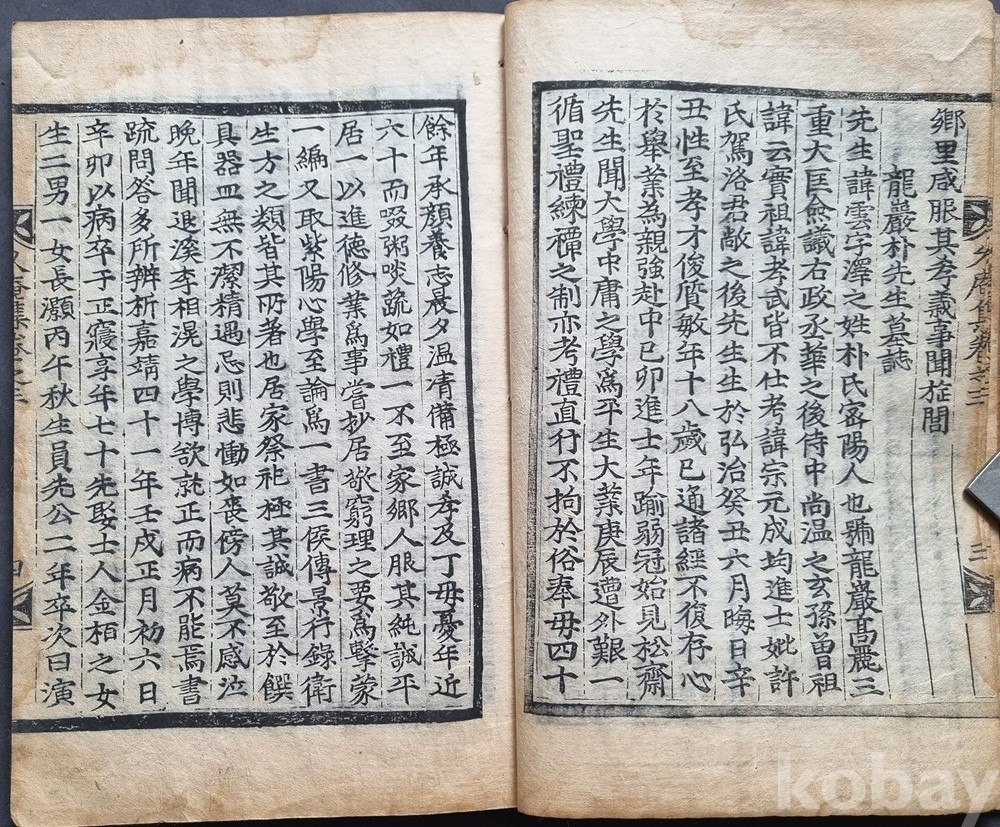 鄉里咸服其孝義事聞旌閭
龍巖朴先生墓誌
先生諱雲字澤之姓朴氏密陽人也號龍巖高麗三
重大匡僉議右政丞華之後侍中尚溫之玄孫曾祖
諱云寶祖諱孝武皆不仕考諱宗元成均進士妣許
氏駕洛君敵之後先生生於弘治癸丑六月晦日辛
丑性至孝才俊質敏年十八歲已通諸經不復存心
於舉業為親強赴中己卯進士年踰弱冠始見松齋
先生聞大學中庸之學爲平生大業庚辰遭外艱一
循聖禮練禫之制亦考禮直行不拘於俗奉母四十
餘年承顏養志晨夕溫凊備極誠孝及丁母憂年近
六十而啜粥啖蔬如禮一不至家鄉人服其純誠平
居一以進德修業爲事嘗抄居欲窮理之要爲擊蒙
一編又取紫陽心學至論爲一書三侯傳景行錄衛
生方之類皆其所著也居家祭祀極其誠敬至於饌
具器皿無不潔精遇忌則悲慟如喪傍人莫不感泣
晚年聞退溪李相滉之學博欲就正而病不能焉書
疏問答多所辨析嘉靖四十一年壬戌正月初六日
辛卯以病卒于正寢享年七十先娶士人金栢之女
生二男一女長灝丙午秋生員先公二年卒次曰演
卷之三
三
四
kobay